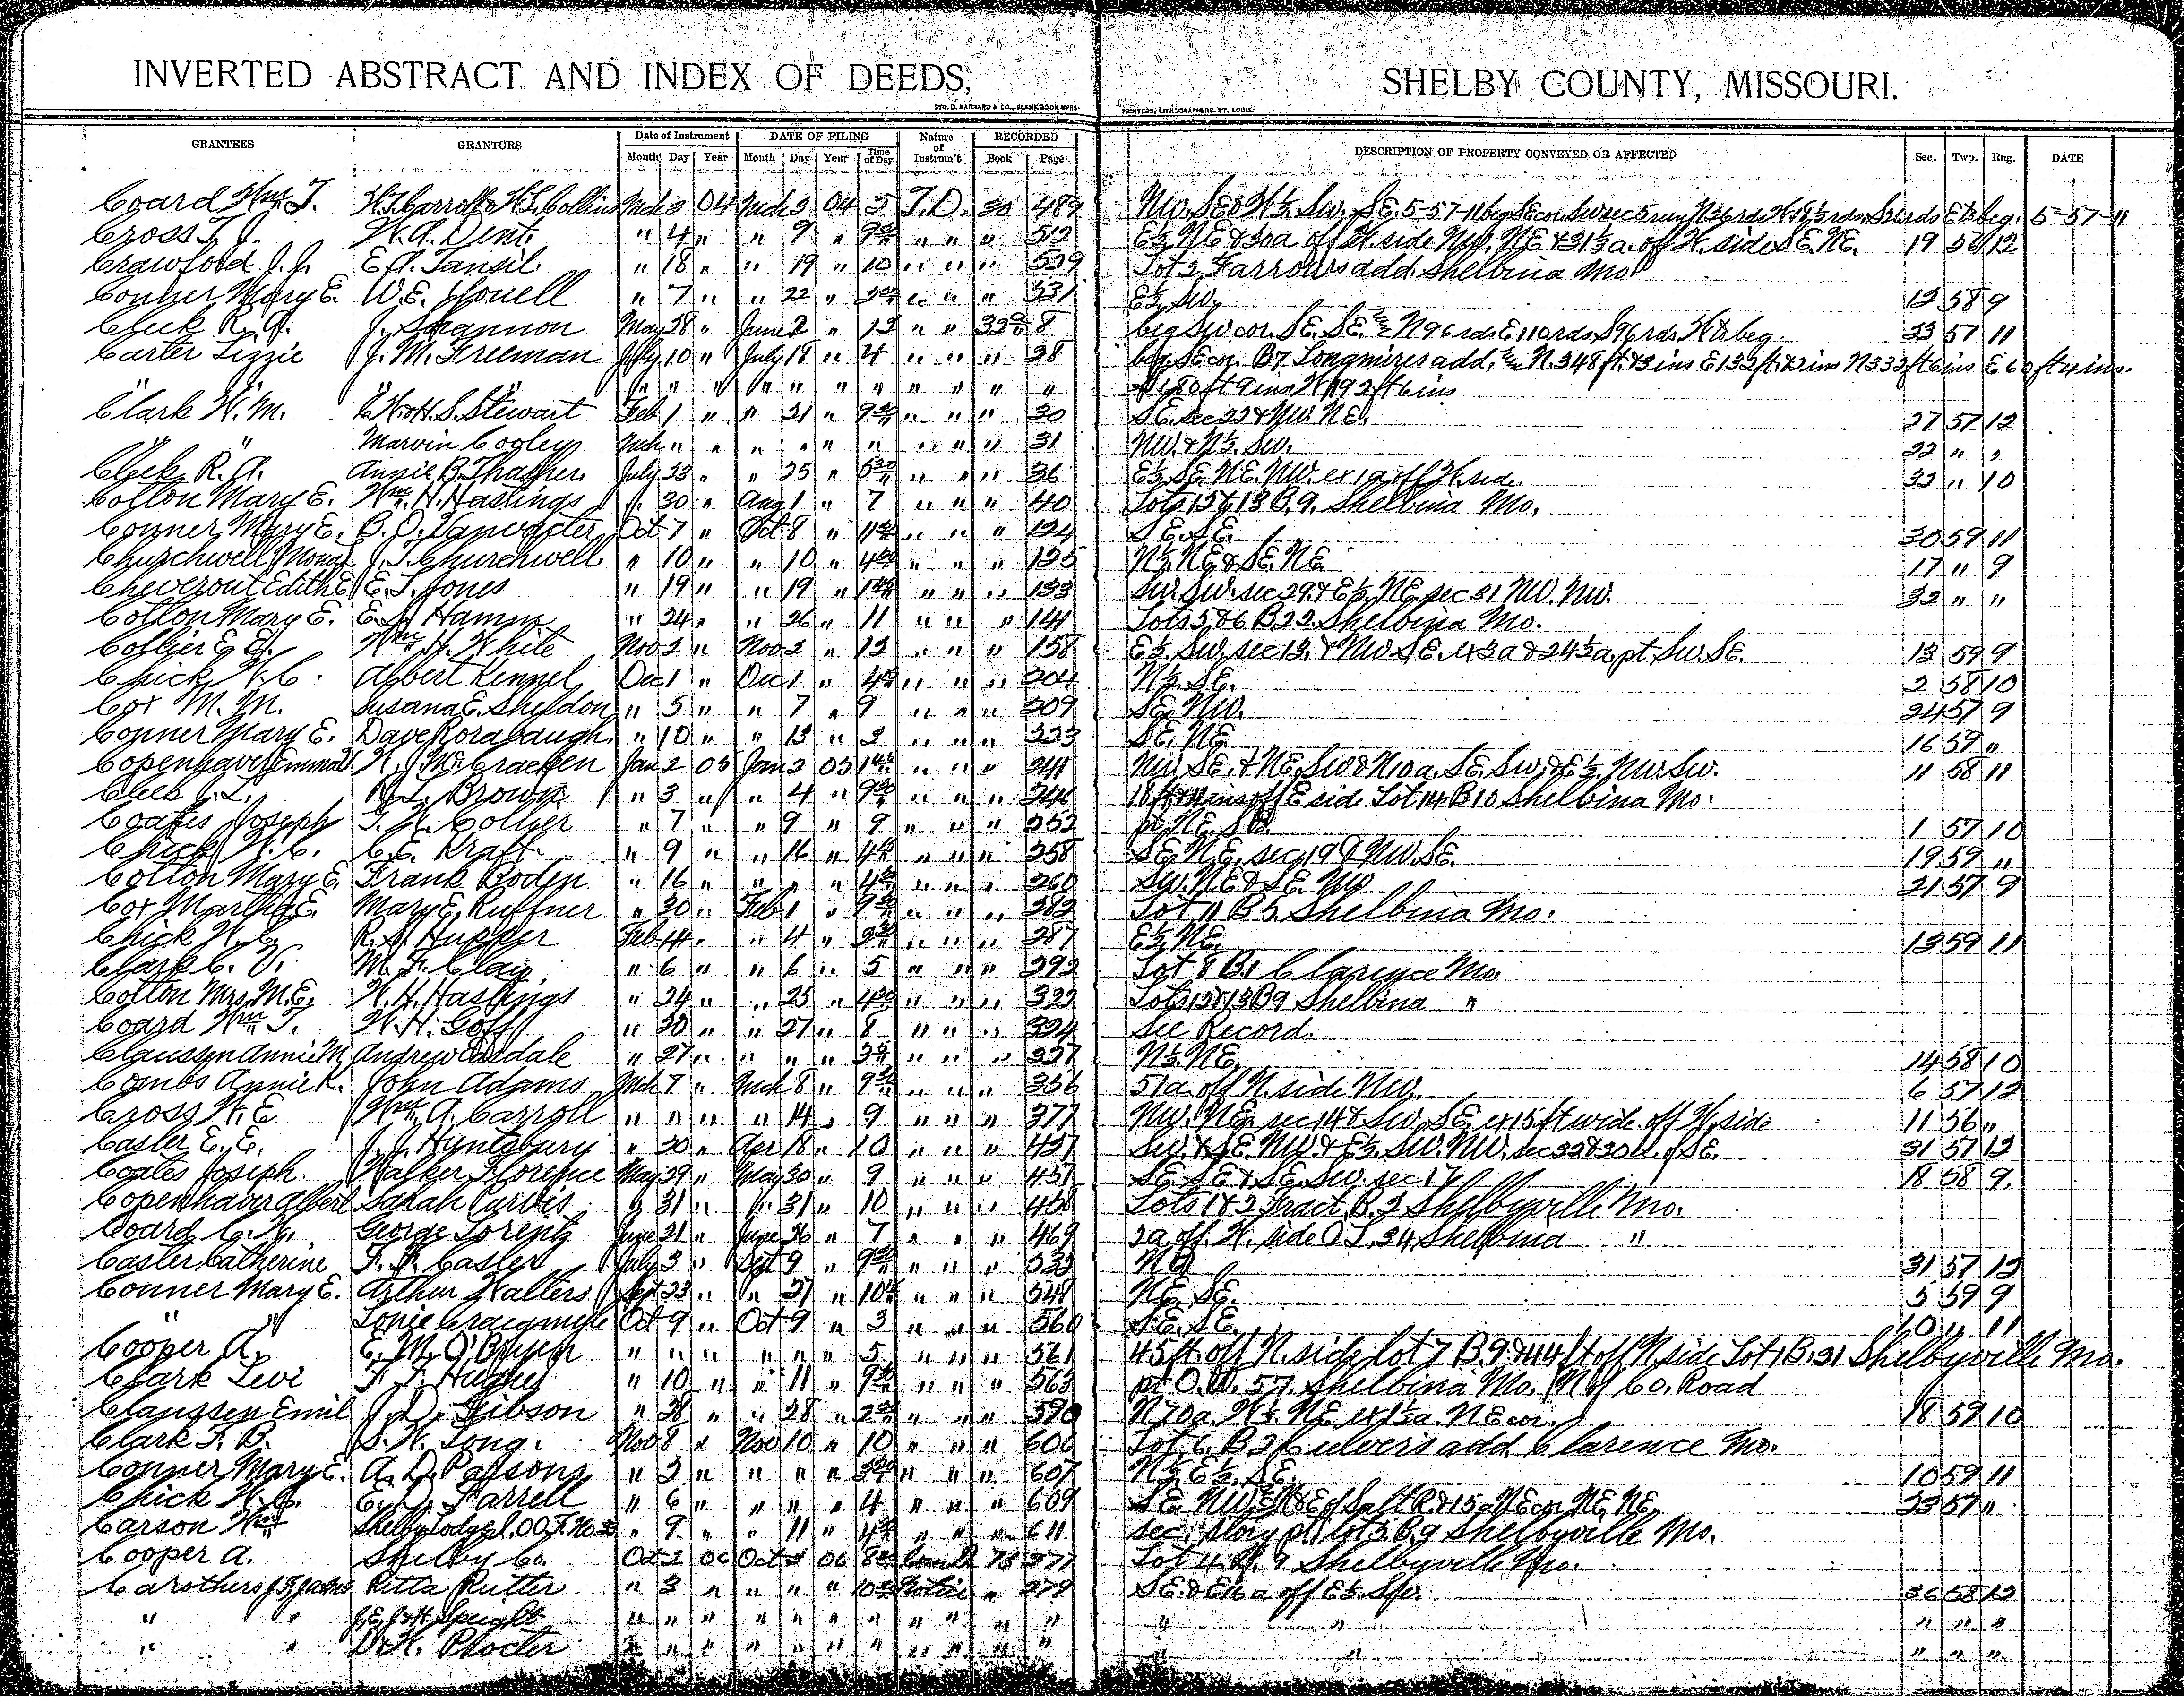 INVERTED ABSTRACT AND INDEX OF DEEDS, SHELBY COUNTY, MISSOURI.
GEO. D. BARNARD & CO., BLANK BOOK MFRS. PRINTERS, LITHOGRAPHERS, ST. LOUIS.
GRANTEES GRANTORS Date of Instrument DATE OF FILING Nature of Instrum't RECORDED DESCRIPTION OF PROPERTY CONVEYED OR AFFECTED Sec. Twp. Rng. DATE
Month Day Year Month Day Year Time of Day Book Page
Coard Wm. T. W.T. Carroll & H.S. Collins Mch 3 04 Mch 3 04 5 T.D. 30 489 Nw. SE & W½ Sw. SE. 5-57-11 beg SE cor. Sw sec 5 E to beg. 5-57-11
Cross T. J. W. A. Dent. " 4 " " 9 " 9 " " " 512 E½ NE & 30a off W. side Nw. NE & 31½ a. off W. side SE. NE. 19 56 12
Crawford J. J. E. A. Tansil. " 18 " " 19 " 10 " " " 529 Lot 2 Farrows add. Shelbina Mo
Conner Mary E. W. E. Howell " 7 " " 22 " " " " 531 E½ Sw. 12 58 9
Cleek R. A. J. Shannon May 28 " June 2 " 12 " " 32 8 beg Sw cor. SE. SE. N 96 rds. E 110 rds. S 96 rds. W to beg. 33 57 11
Carter Lizzie J. M. Freeman July 10 " July 18 " 4 " " " 28 beg SE cor. B7 Longmires add. N. 348 ft. & 3 ins E 132 ft. & 2 ins N 332 ft 6 ins E 60 ft 4 ins.
" " " " " " " " " " " " " " 680 ft 9 ins W 192 ft 6 ins
Clark W. M. H. S. Stewart Feb 1 " " 21 " 9 " " " 30 SE. sec 22 & Nw. NE. 27 57 12
" " Marvin Cogley Mch " " " " " " " " " 31 NW. & N½ Sw. 22 " "
Cleek R. A. Annie B. Thasher July 23 " " 25 " " " " 36 E½ SE. NE. NW. ex 1a off W. side. 32 " 10
Cotton Mary E. Wm. H. Hastings " 30 " Aug 1 " 7 " " " 40 Lots 12 & 13 B. 9. Shelbina Mo.
Conner Mary E. B. O. Vanvacter Oct 7 " Oct 8 " 11 " " " 124 SE. SE. 30 59 11
Churchwell J. T. Churchwell " 10 " " 10 " 4 " " " 125 N½ NE & SE. NE 17 " 9
Cheverout Edith E. E. T. Jones " 19 " " 19 " 1 " " " 133 Sw. Sw. sec 29. & E½ NE. sec 31 NW. NW. 32 " "
Cotton Mary E. E. J. Hamm " 24 " " 26 " 11 " " " 141 Lots 5 & 6 B 22. Shelbina Mo.
Collier E. E. Wm. H. White Nov 2 " Nov 2 " 12 " " " 158 E½ Sw. sec 13. & NW. SE. ex 3a & 24½ a. pt. Sw. SE. 13 59 9
Chick W. C. Albert Kennel Dec 1 " Dec 1 " 4 " " " 204 N½ SE. 2 58 10
Cox M. M. Susana E. Sheldon " 5 " " 7 " 9 " " " 209 SE. NW. 24 57 9
Conner Mary E. Dave Rorabaugh " 10 " " 13 " 3 " " " 223 SE. NE 16 59 "
Copenhaver Emma W. J. McCracken Jan 2 05 Jan 3 05 " " " 241 NW. SE. & NE. Sw & N 10 a. SE. Sw. & E½ NW. Sw. 11 58 11
Cleek J. L. H. L. Brown " 3 " " 4 " 9 " " " 246 off E side Lot 14 B 10 Shelbina Mo.
Coates Joseph T. W. Collier " 7 " " 9 " 9 " " " 252 pt. NE. SE. 1 57 10
Chick W. C. C. E. Kraft. " 9 " " 16 " 4 " " " 258 SE. NE. sec 19 & NW. SE. 19 59 "
Cotton Mary E. Frank Boden " 16 " " " " 4 " " " 260 Sw. NE & SE. NW 21 57 9
Cox Martha E. Mary E. Ruffner " 30 " Feb 1 " 9 " " " 282 Lot 11 B 5 Shelbina Mo.
Chick W. C. R. S. Hupper Feb 4 " " 4 " 2 " " " 287 E½ NE. 13 59 11
Clark C. V. M. F. Clay " 6 " " 6 " 5 " " " 292 Lot 8 B. 1 Clarence Mo.
Cotton Mrs. M. E. W. H. Hastings " 24 " " 25 " 4 " " " 322 Lots 12 & 13 B 9 Shelbina "
Coard Wm. T. W. H. Goff " 20 " " 27 " 8 " " " 324 See Record.
Claussen Annie M. Andrew " 27 " " " " 3 " " " 327 N½ NE. 14 58 10
Combs Annie K. John Adams Mch 7 " Mch 8 " 9 " " " 356 51a. off N. side NW. 6 57 12
Cross W. E Wm. A. Carroll " " " " 14 " 9 " " " 377 NW. NE. sec 14 & Sw. SE. ex 15 ft wide off W. side 11 56 "
Casler E. E. J. J. Huntsbury " 20 " Apr 18 " 10 " " " 427 Sw. & SE. NW. & E½ SW. NW. sec 32 & 30a. of SE. 31 57 12
Coates Joseph. Walker Florence May 29 " May 30 " 9 " " " 457 SE. SE & SE. Sw. sec 17 18 58 9.
Copenhaver Albert Sarah Purvis " 31 " " 31 " 10 " " " 458 Lots 1 & 2 Tract B. 2 Shelbyville Mo.
Coard C. W. George Lorentz June 21 " June 26 " 7 " " " 469 2a off. W. side O. L. 34, Shelbina "
Casler Catherine F. P. Casler July 3 " Sept 9 " 9 " " " 533 31 57 12
Conner Mary E. Arthur Walters Sept 23 " " 27 " 10 " " " 548 NE. SE. 5 59 9
" " Lonie Craigmyle Oct 9 " Oct 9 " 3 " " " 560 SE. SE. 10 " 11
Cooper A. E. M. O'Bryen " " " " " " 5 " " " 561 45 ft. off N. side lot 7 B. 9 & 44 ft off N side Lot 1, B. 31 Shelbyville Mo.
Clark Levi F. T. Hughes " 10 " " 11 " 9 " " " 563 pt O. L. 57. Shelbina Mo. N of Co. Road
Claussen Emil J. D. Gibson " 28 " " 28 " 2 " " " 590 N 70a. W½ NE. ex 1½ a. NE cor. 18 59 10
Clark F. B. S. W. Long. Nov 8 " Nov 10 " 10 " " " 606 Lot 6. B 2 Culver's add. Clarence Mo.
Conner Mary E. A. D. Parsons " 2 " " " " 3 " " " 607 N½ E½ SE. 10 59 11
Chick W. C. E. D. Farrell " 6 " " " " 4 " " " 609 SE. NW. of Salt R. & 15 a NE cor NE. NE. 23 57 "
Carson Wm. Shelby Lodge I.O.O.F. No. 33 " 9 " " 11 " 4 " " " 611 sec. story pt lot 5 B. 9 Shelbyville Mo.
Cooper A. Shelby Co. Oct 2 06 Oct 2 06 8 78 277 Lot 4. B. 9 Shelbyville Mo.
Carothers J. F. Ritta Rutter " 3 " " " " 10 Notice " 279 SE. & E 16 a off E½ Sw. 36 58 12
" " Speight " " " " " " " " " " " " " " " "
" " D. W. Procter " " " " " " " " " " " " " " "